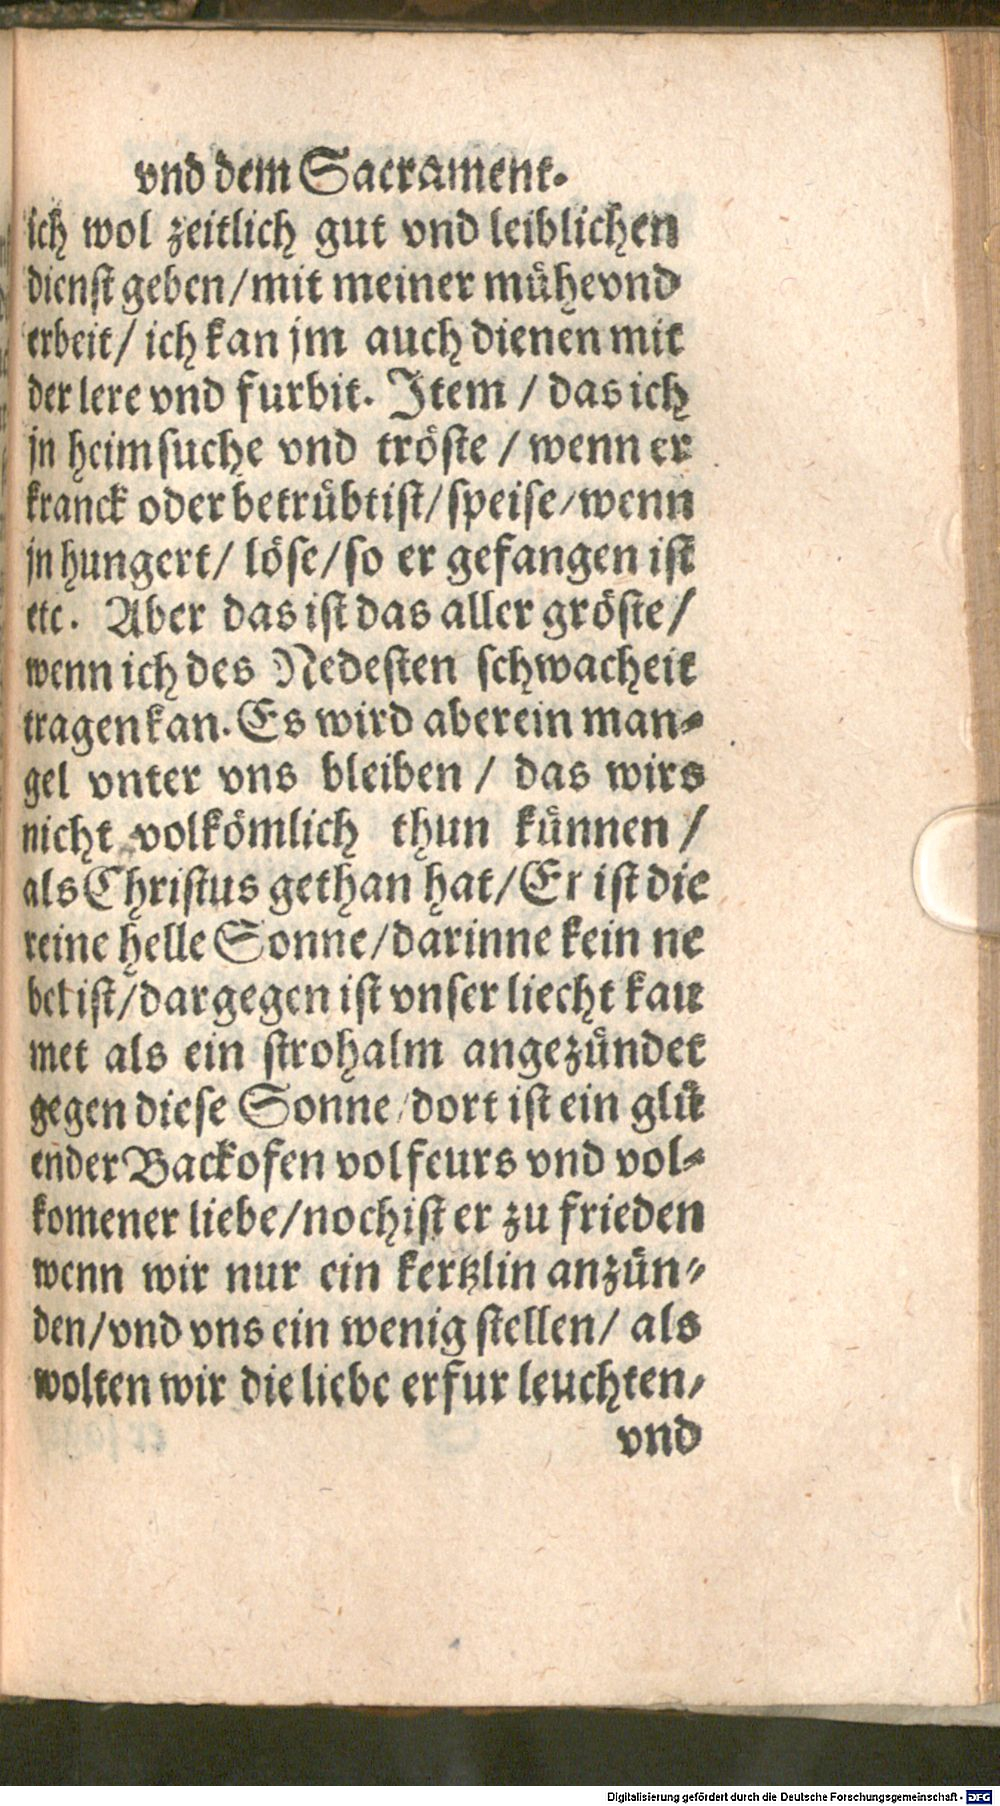 vnd dem Sacrament.
ich wol zeitlich gut vnd leiblichen
dienst geben/mit meiner mühevnd
erbeit/ ich kan jm auch dienen mit
der lere vnd furbit. Item / das ich
jn heimsuche vnd tröste / wenn er
kranck oder betrübtist/ speise/wenn
jn hungert/ löse/so er gefangen ist
etc. Aber das ist das aller gröste/
wenn ich des Nedesten schwacheit
tragen kan. Es wird aberein man-
gel vnter vns bleiben / das wirs
nicht volkömlich thun künnen /
als Christus gethan hat/Er ist die
reine helle Sonne/darinne kein ne
bel ist/dargegen ist vnser liecht kau
met als ein strohalm angezündet
gegen diese Sonne/dort ist ein glü
ender Backofen vol feurs vnd vol-
komener liebe/noch ist er zu frieden
wenn wir nur ein kertzlin anzün-
den/vnd vns ein wenig stellen/ als
wolten wir die liebe erfur leuchten/
vnd
Digitalisierung gefördert durch die Deutsche Forschungsgemeinschaft - DFG